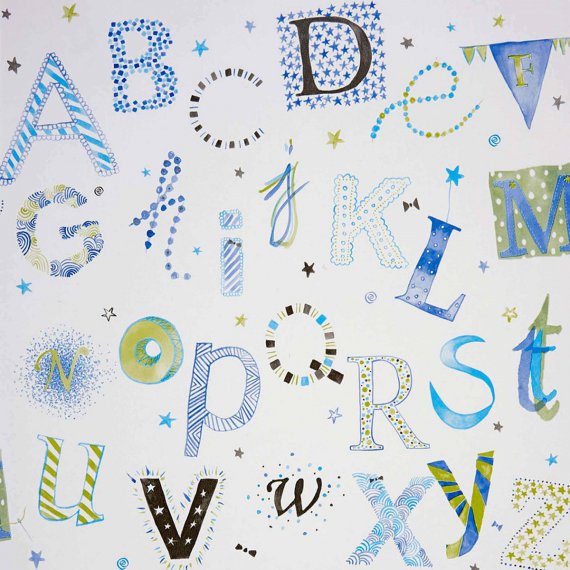 A B C D e F
G h i j K L M
N o p Q R S t
u V w X y Z